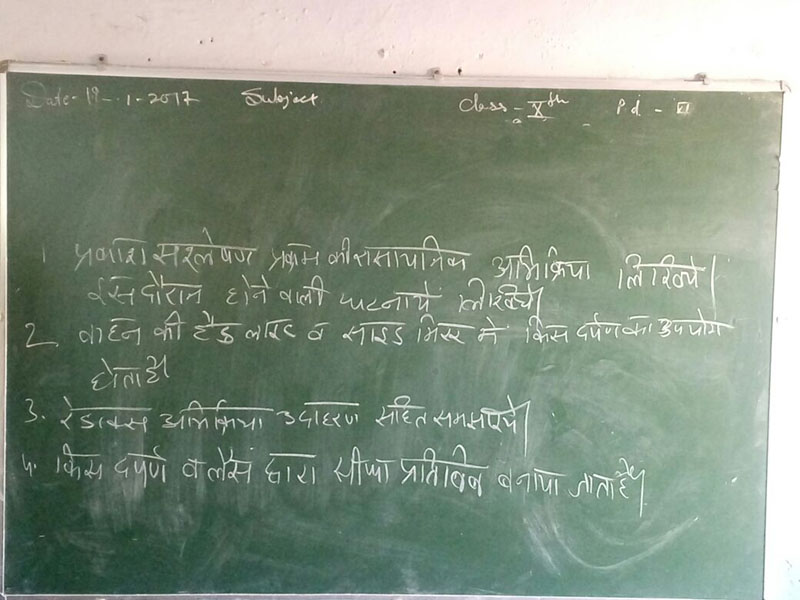 Date- 19-1-2017 Subject Class - Xth Pd - VI
1 प्रकाश संश्लेषण प्रक्रम की रासायनिक अभिक्रिया लिखिये।
इस दौरान होने वाली घटनायें लिखिये।
2. वाहन की हैड लाइट व साइड मिरर में किस दर्पण का उपयोग
होता है।
3. रेडाक्स अभिक्रिया उदाहरण सहित समझाइये।
4. किस दर्पण व लैंस द्वारा सीधा प्रतिबिंब बनाया जाता है।